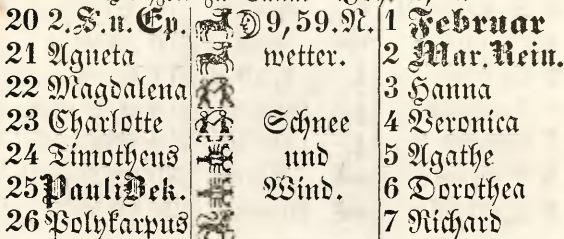 20 2.S.n.Ep. 9,59.N. 1 Februar
21 Agneta wetter. 2 Mar.Rein.
22 Magdalena 3 Hanna
23 Charlotte Schnee 4 Veronica
24 Timotheus und 5 Agathe
25 Pauli Bek. Wind. 6 Dorothea
26 Polykarpus 7 Richard